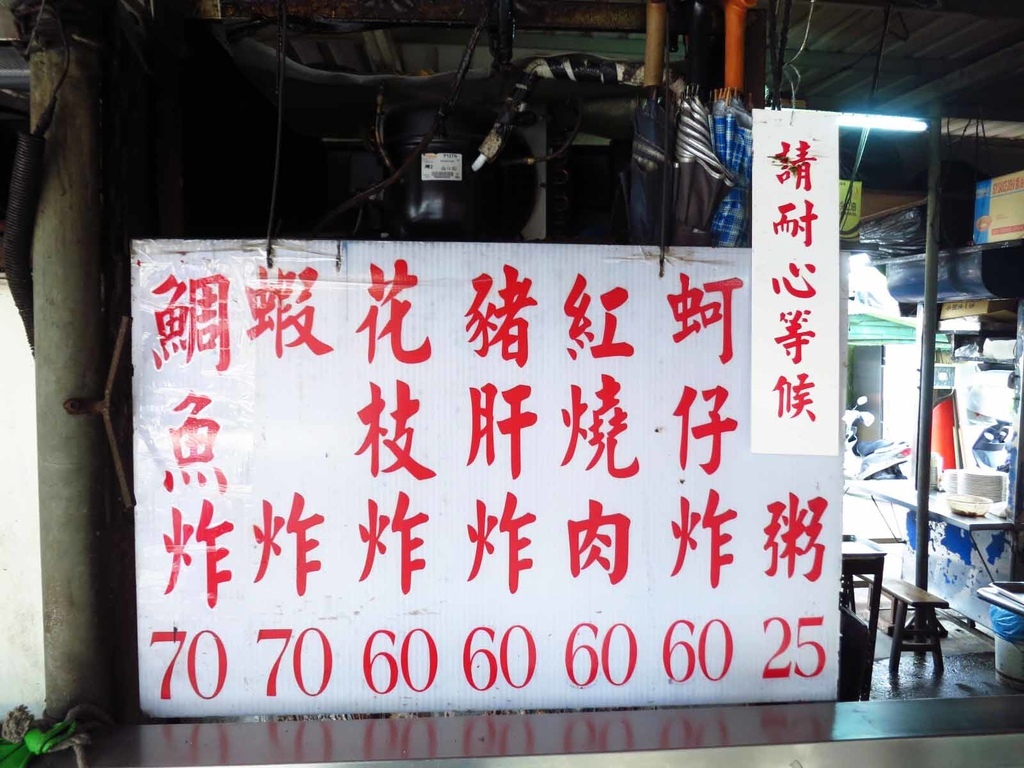 請耐心等候
粥
25
蚵仔炸
60
紅燒肉
60
豬肝炸
60
花枝炸
60
蝦炸
70
鯛魚炸
70